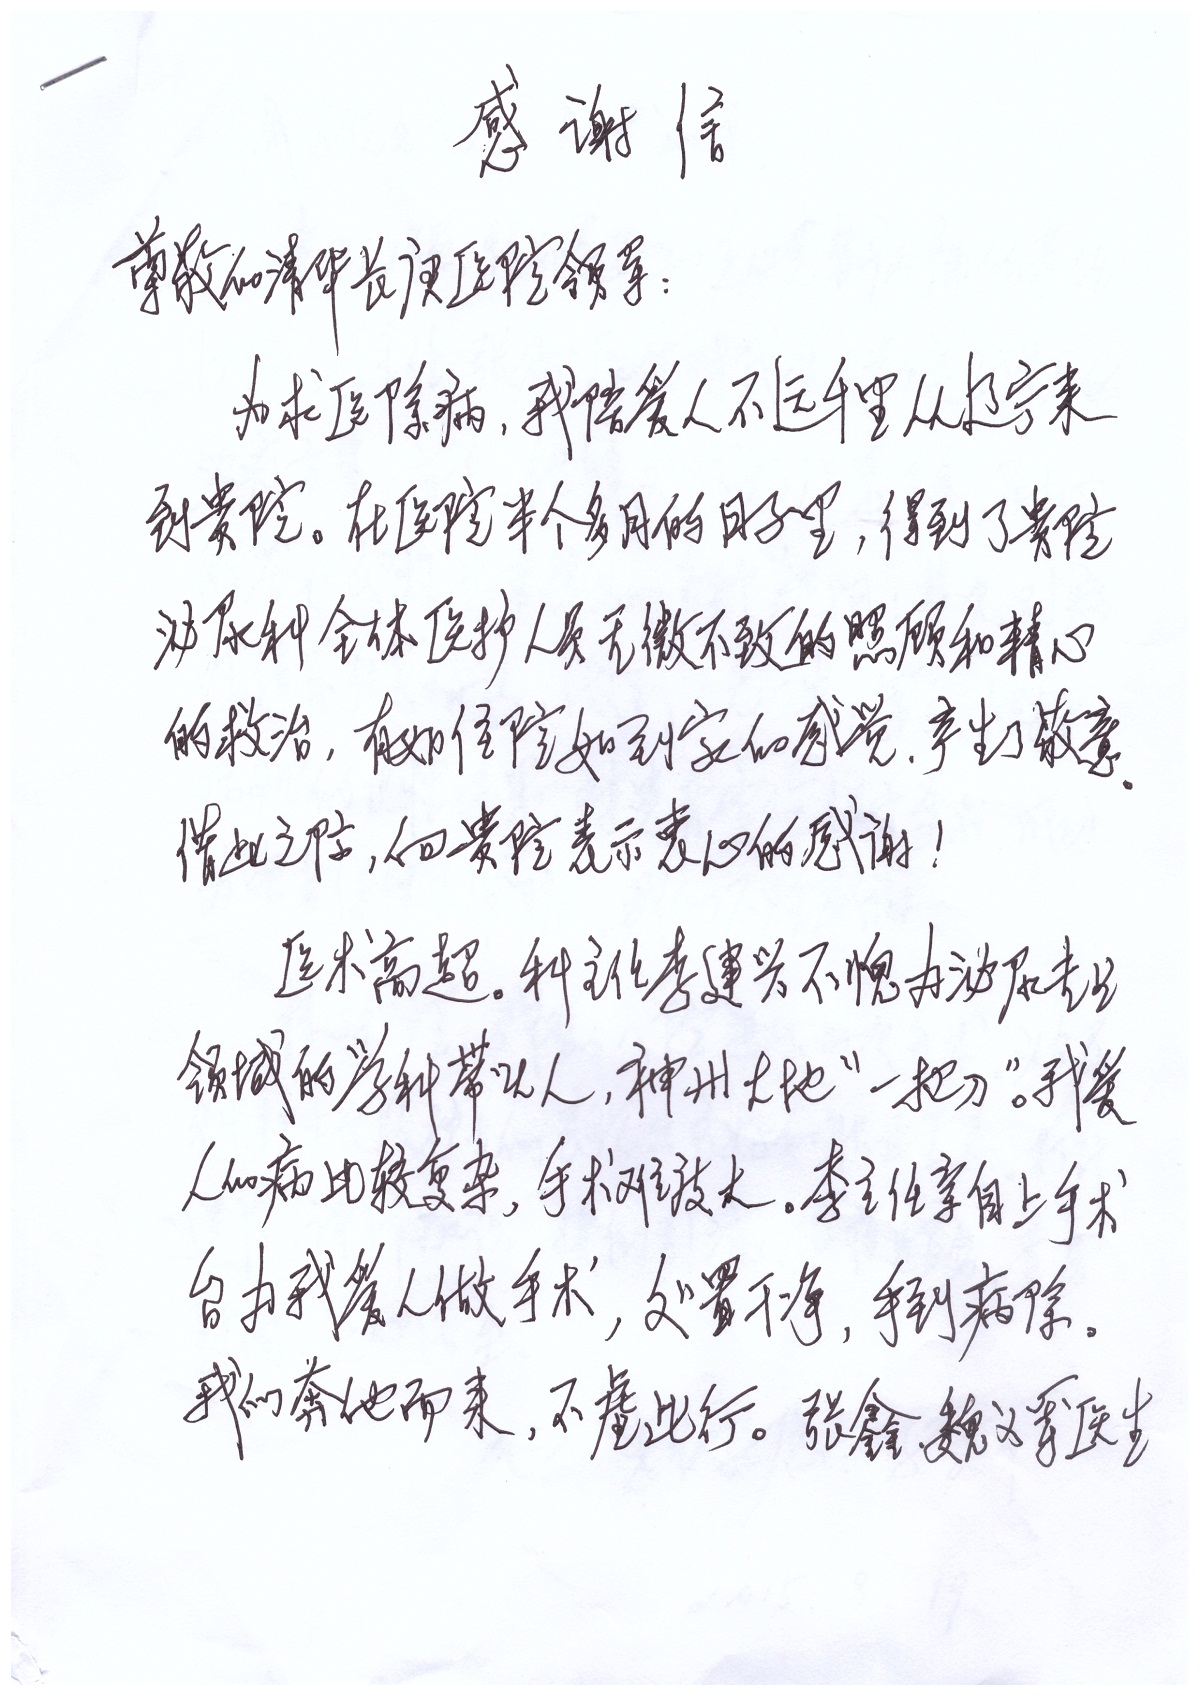 感谢信
尊敬的清华长庚医院领导：
为求医除病，我陪爱人不远千里从辽宁来
到贵院。在医院半个多月的日子里，得到了贵院
泌尿科全体医护人员无微不致的照顾和精心
的救治，有如住院如到家的感觉，产生了敬意。
借此之际，向贵院表示衷心的感谢！
医术高超。科主任李建兴不愧为泌尿专业
领域的学科带头人，神州大地“一把刀”。我爱
人的病比较复杂，手术难度大。李主任亲自上手术
台为我爱人做手术，处置干净，手到病除。
我们奔他而来，不虚此行。张鑫、魏义军医生